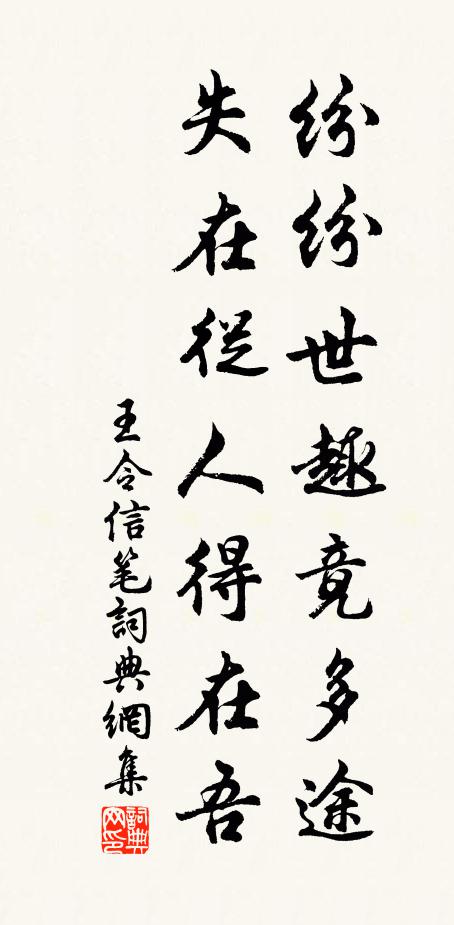 纷纷世趣竟多途
失在從人得在吾
王令信笔詞典網集
詞典网印